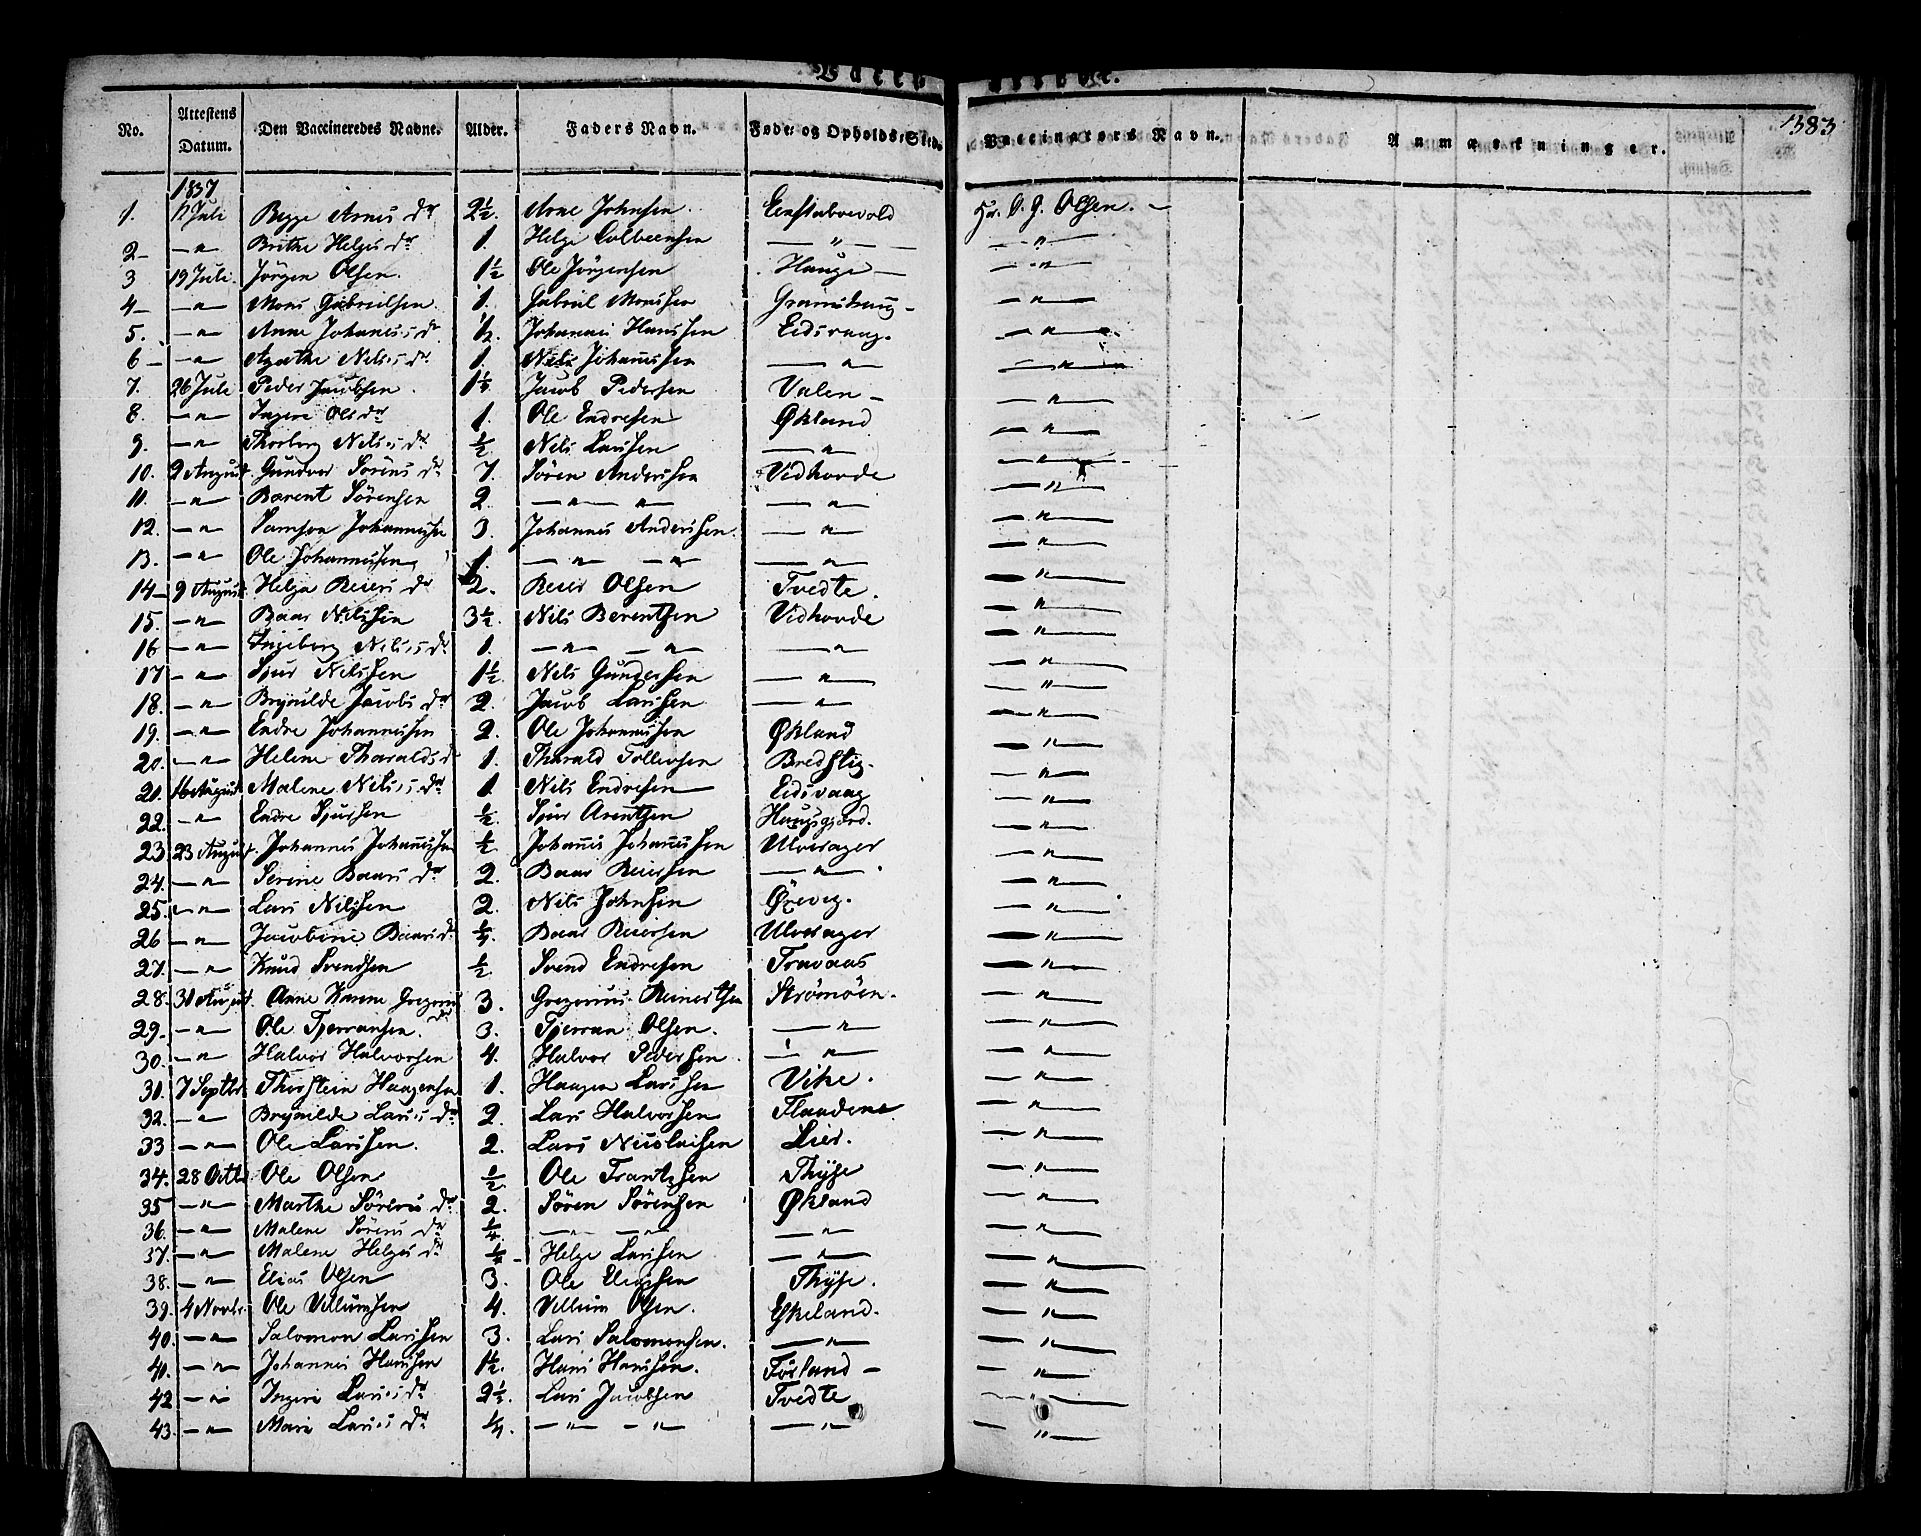 383
No. Attestens Datum. Den Vaccineredes Navne. Alder. Faders Navn. Føde- og Opholds-Sted. Vaccinators Navn. Anmærkninger.
1837
1. 12 Juli Arnes dr 2½ Arne Johnsen Hr. O. J. Olsen. —
2 — " Brithe Helges dr 1. Helge — " — — " —
3 19 Juli. Jørgen Olsen. 1½ Ole Jörgensen Hauge — — " —
4 — — " — Mons Gabrielsen. 1. Gabriel Monssen — " —
5. — " — Anne Johanes dr ½ Johannes Hanssen Eidsvaag. — " —
6 — — " — Agathe Nels dr 1. Nels Johannessen — " — — " —
7. 26 Juli Peder Jacobsen. 1½ Jacob Pedersen Valen — — " —
8. — " — Ingeri Ols dr 1. Ole Endresen Økland — " —
9. — " — Thorberg Nels dr ½ Nels Larssen — " — — " —
10. 2 August Gundvor Sörens dr 7. Sören Anderssen Vidhovde — " —
11. — " — Barent Sörensen 2. — " — " — " — — " —
12. — " — Samson Johannessen 3. Johannes Anderssen. — " — — " —
13. — " — Ole Johannessen 1. — " — — " — " — — " —
14 — 9 August Helga Reiers dr 2. Reier Olsen Tvedte. — " —
15. — " — Baar Nelssen 3½. Nils Berentsen Vidhovde — " —
16 — " — Ingeborg Nels dr 1. — " — — " — " — — " —
17 — " — Sjur Nelssen 1½ Nels Gundersen — " — — " —
18. — " — Brynilde Jacobs dr 2. Jacob Larssen — " — — " —
19. — " — Endre Johannessen 2. Ole Johannessen Økland — " —
20. — " — Helene Tharalds d 1. Tharald Tollevsen Bredstig. — " —
21. 16 August Malene Nels dr 1 Nels Endresen Eidsvaag — " —
22. — " — Endre Sjurssen ½ Sjur Arentsen Haugsgjærd. — " —
23 23 August. Johannes Johanessen ½ Johanes Johanessen Ulverager — " —
24. — " — Serine Baars dr 2. Baar Reiersen — " — — " —
25. — " — Lars Nelssen 2. Nels Johnsen — " —
26 — " — Jacobine Baars dr ¼ Baar Reiersen Ulverager — " —
27. — " — Knud Svendsen ½ Svend Endresen Travaas — " —
28. 31 August. Anne Karine Gregorius dr 3. Gregorius Reinertsen Strømøen. — " —
29. — " — Ole Tjerransen. 3. Tjerran Olsen. — " — — " —
30. — " — Halvor Halvorsen 4. Halvor Pedersen — " — — " —
31. 7 Septbr. Thorstein Haagensen 1. Haagen Larssen Vike. — " —
32. — " — Brynilde Lars dr 2. Lars Halvorsen — " —
33 — " — Ole Larssen. 2. Lars Nicolaisen Lier. — " —
34. 28 Octbr. Ole Olsen ½ Ole Frantzsen — " —
35 — " — Marthe Sörens dr 2. Sören Sörensen Økland — " —
36. — " — Malene Sörens dr ¼ — " — — " — " — — " —
37. — " — Malene Helges dr Helge Larssen — " — — " —
38. — " — Elias Olsen 3. Ole Eliassen — " —
39. 4 Novbr. Ole Villumsen 4. Villum Olsen. — " —
40. — " — Salomon Larssen 3. Lars Salomonsen. — " — — " —
40. — " — Johannes Hanssen 1½. Hans Hanssen. Førland — — " —
42 — " — Ingeri Lars dr 2½. Lars Jacobsen Tvedte — " —
43. — " — Mari Lars dr ¼. — " — — " — " — — " —